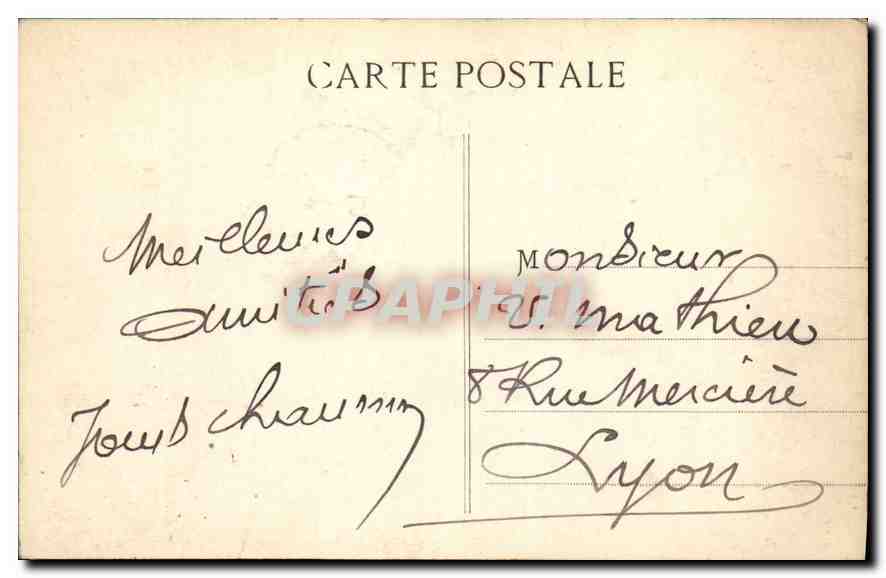 CARTE POSTALE
Meilleures
amitiés
Monsieur
V. Mathieu
8 Rue Mercière
Lyon
CPAPHIL